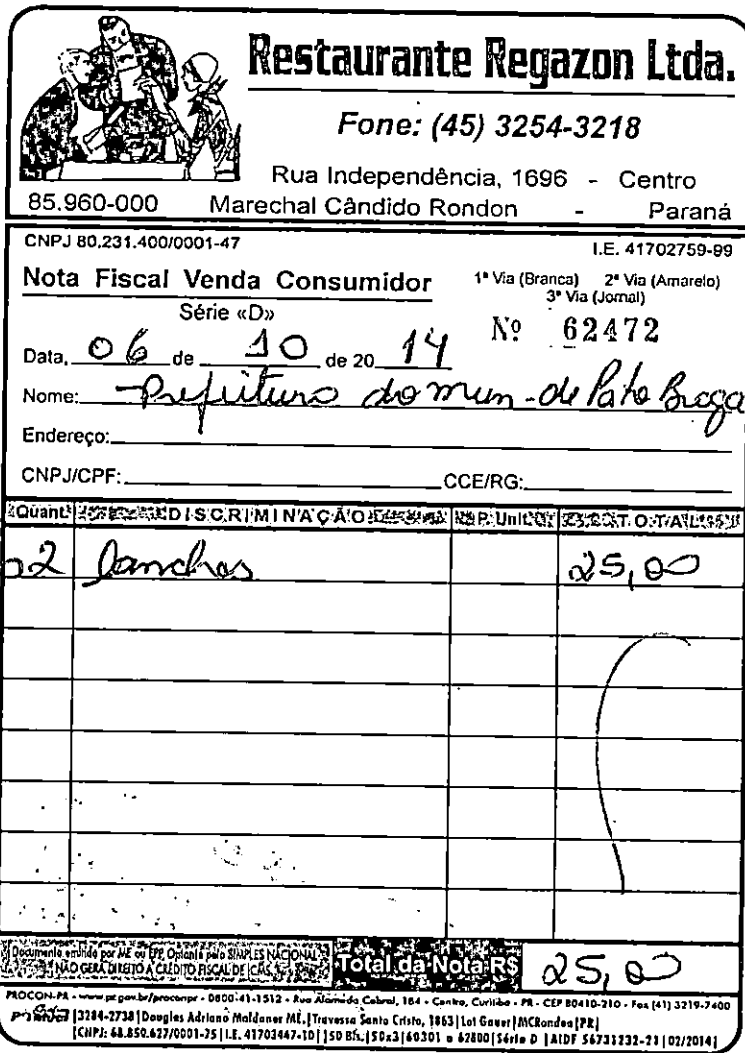 Restaurante Regazon Ltda.
Fone: (45) 3254-3218
Rua Independência, 1696 - Centro
85.960-000 Marechal Cândido Rondon - Paraná
CNPJ 80.231.400/0001-47 I.E. 41702759-99
Nota Fiscal Venda Consumidor 1ª Via (Branca) 2ª Via (Amarelo)
Série «D» 3ª Via (Jornal)
Nº 62472
Data, 06 de 10 de 2014
Nome: Prefeitura do mun. de Pato Braga
Endereço:
CNPJ/CPF: CCE/RG:
Quant. DISCRIMINAÇÃO P. Unit. TOTAL
02 lanches 25,00
Documento emitido por ME ou EPP Optante pelo SIMPLES NACIONAL
NÃO GERA DIREITO A CRÉDITO FISCAL DE ICMS,
Total da Nota R$ 25,00
PROCON-PR - www.pr.gov.br/proconpr - 0800-41-1512 - Rua Alameda Cabral, 184 - Centro, Curitiba - PR - CEP 80410-210 - Fax (41) 3219-7400
3284-2738 | Douglas Adriano Maldaner ME. | Travessa Santo Cristo, 1863 | Lot Gauer | MCRondon | PR |
| CNPJ: 68.850.627/0001-75 | I.E. 41703447-10 | 50 Bls. | 50x3 | 60301 a 62800 | Série D | AIDF 56731232-21 | 02/2014 |